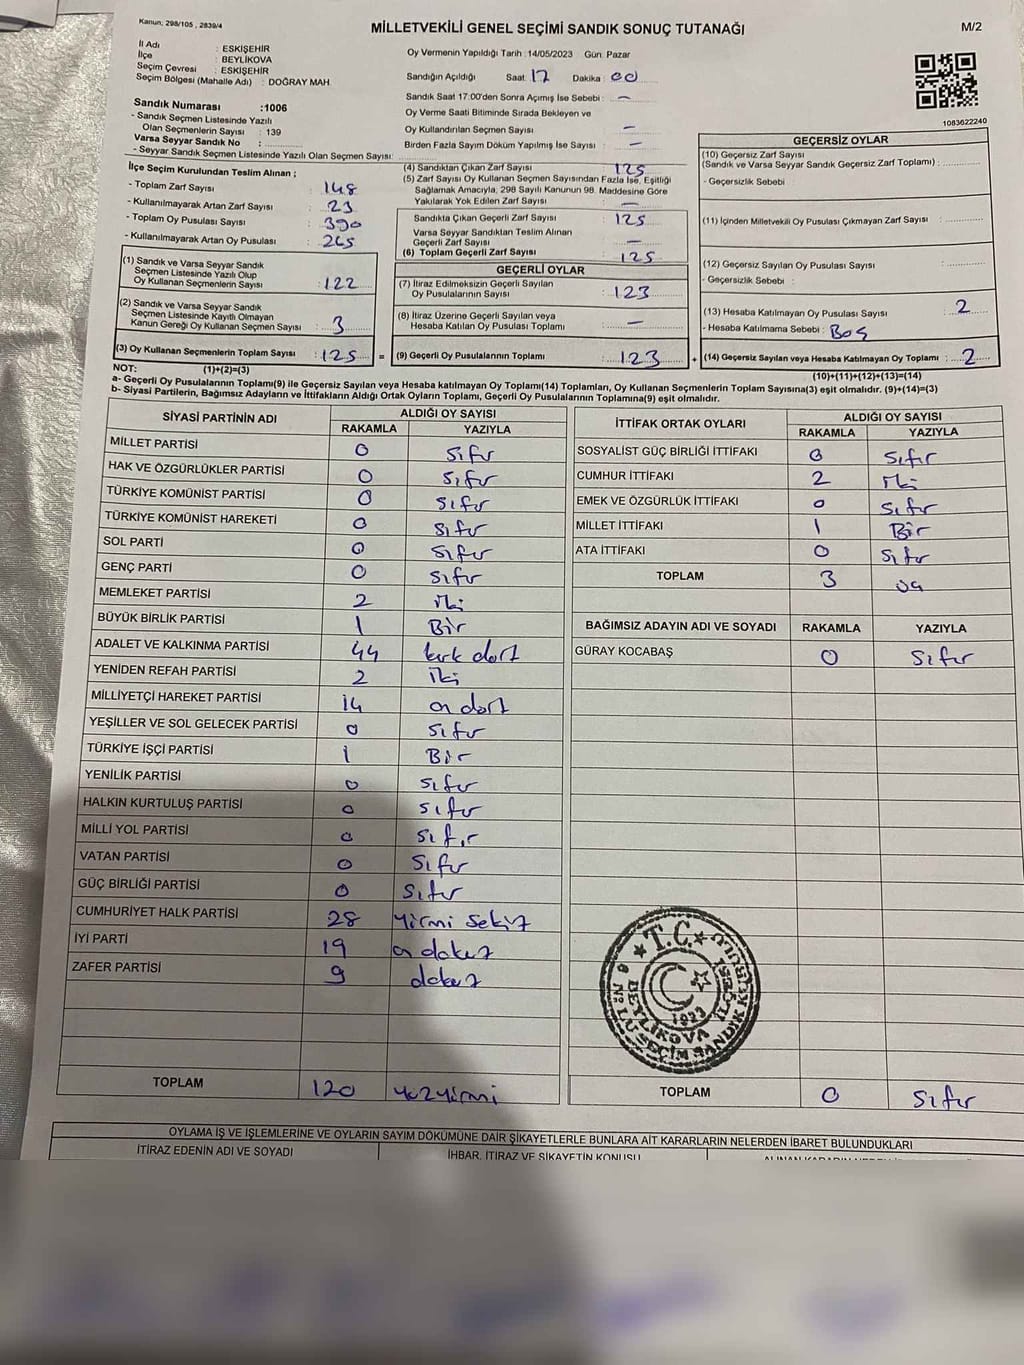 Kanun; 298/105 , 2839/4
MİLLETVEKİLİ GENEL SEÇİMİ SANDIK SONUÇ TUTANAĞI
M/2
İl Adı : ESKİŞEHİR
İlçe : BEYLİKOVA
Seçim Çevresi : ESKİŞEHİR
Seçim Bölgesi (Mahalle Adı) : DOĞRAY MAH.
Oy Vermenin Yapıldığı Tarih :14/05/2023 Gün: Pazar
Sandığın Açıldığı Saat: 17 Dakika : 00
Sandık Saat 17:00'den Sonra Açımış İse Sebebi : —
Oy Verme Saati Bitiminde Sırada Bekleyen ve
Oy Kullandırılan Seçmen Sayısı —
Birden Fazla Sayım Döküm Yapılmış İse Sayısı : —
1083622240
Sandık Numarası :1006
- Sandık Seçmen Listesinde Yazılı
Olan Seçmenlerin Sayısı : 139
Varsa Seyyar Sandık No :
- Seyyar Sandık Seçmen Listesinde Yazılı Olan Seçmen Sayısı:
İlçe Seçim Kurulundan Teslim Alınan ;
- Toplam Zarf Sayısı : 148
- Kullanılmayarak Artan Zarf Sayısı : 23
- Toplam Oy Pusulası Sayısı : 390
- Kullanılmayarak Artan Oy Pusulası : 265
(1) Sandık ve Varsa Seyyar Sandık
Seçmen Listesinde Yazılı Olup
Oy Kullanan Seçmenlerin Sayısı : 122
(2) Sandık ve Varsa Seyyar Sandık
Seçmen Listesinde Kayıtlı Olmayan
Kanun Gereği Oy Kullanan Seçmen Sayısı : 3
(3) Oy Kullanan Seçmenlerin Toplam Sayısı : 125 =
(4) Sandıktan Çıkan Zarf Sayısı : 125
(5) Zarf Sayısı Oy Kullanan Seçmen Sayısından Fazla İse, Eşitliği
Sağlamak Amacıyla, 298 Sayılı Kanunun 98. Maddesine Göre
Yakılarak Yok Edilen Zarf Sayısı : —
Sandıkta Çıkan Geçerli Zarf Sayısı : 125
Varsa Seyyar Sandıktan Teslim Alınan
Geçerli Zarf Sayısı : —
(6) Toplam Geçerli Zarf Sayısı : 125
GEÇERLİ OYLAR
(7) İtiraz Edilmeksizin Geçerli Sayılan
Oy Pusulalarının Sayısı : 123
(8) İtiraz Üzerine Geçerli Sayılan veya
Hesaba Katılan Oy Pusulası Toplamı : —
(9) Geçerli Oy Pusulalarının Toplamı : 123 +
GEÇERSİZ OYLAR
(10) Geçersiz Zarf Sayısı
(Sandık ve Varsa Seyyar Sandık Geçersiz Zarf Toplamı) :
- Geçersizlik Sebebi :
(11) İçinden Milletvekili Oy Pusulası Çıkmayan Zarf Sayısı :
(12) Geçersiz Sayılan Oy Pusulası Sayısı :
- Geçersizlik Sebebi :
(13) Hesaba Katılmayan Oy Pusulası Sayısı : 2
- Hesaba Katılmama Sebebi : Boş
(14) Geçersiz Sayılan veya Hesaba Katılmayan Oy Toplamı : 2
NOT: (1)+(2)=(3)
(10)+(11)+(12)+(13)=(14)
a- Geçerli Oy Pusulalarının Toplamı(9) ile Geçersiz Sayılan veya Hesaba katılmayan Oy Toplamı(14) Toplamları, Oy Kullanan Seçmenlerin Toplam Sayısına(3) eşit olmalıdır. (9)+(14)=(3)
b- Siyasi Partilerin, Bağımsız Adayların ve İttifakların Aldığı Ortak Oyların Toplamı, Geçerli Oy Pusulalarının Toplamına(9) eşit olmalıdır.
SİYASİ PARTİNİN ADI ALDIĞI OY SAYISI
RAKAMLA YAZIYLA
MİLLET PARTİSİ 0 sıfır
HAK VE ÖZGÜRLÜKLER PARTİSİ 0 sıfır
TÜRKİYE KOMÜNİST PARTİSİ 0 sıfır
TÜRKİYE KOMÜNİST HAREKETİ 0 sıfır
SOL PARTİ 0 sıfır
GENÇ PARTİ 0 sıfır
MEMLEKET PARTİSİ 2 iki
BÜYÜK BİRLİK PARTİSİ 1 Bir
ADALET VE KALKINMA PARTİSİ 44 kırk dört
YENİDEN REFAH PARTİSİ 2 iki
MİLLİYETÇİ HAREKET PARTİSİ 14 on dört
YEŞİLLER VE SOL GELECEK PARTİSİ 0 sıfır
TÜRKİYE İŞÇİ PARTİSİ 1 Bir
YENİLİK PARTİSİ 0 sıfır
HALKIN KURTULUŞ PARTİSİ 0 sıfır
MİLLİ YOL PARTİSİ 0 sıfır
VATAN PARTİSİ 0 sıfır
GÜÇ BİRLİĞİ PARTİSİ 0 sıfır
CUMHURİYET HALK PARTİSİ 28 yirmi sekiz
İYİ PARTİ 19 on dokuz
ZAFER PARTİSİ 9 dokuz
TOPLAM 120 yüzyirmi
İTTİFAK ORTAK OYLARI ALDIĞI OY SAYISI
RAKAMLA YAZIYLA
SOSYALİST GÜÇ BİRLİĞİ İTTİFAKI 0 sıfır
CUMHUR İTTİFAKI 2 iki
EMEK VE ÖZGÜRLÜK İTTİFAKI 0 sıfır
MİLLET İTTİFAKI 1 Bir
ATA İTTİFAKI 0 sıfır
TOPLAM 3 üç
BAĞIMSIZ ADAYIN ADI VE SOYADI RAKAMLA YAZIYLA
GÜRAY KOCABAŞ 0 sıfır
T.C.
1923
BEYLİKOVA
TOPLAM 0 sıfır
OYLAMA İŞ VE İŞLEMLERİNE VE OYLARIN SAYIM DÖKÜMÜNE DAİR ŞİKAYETLERLE BUNLARA AİT KARARLARIN NELERDEN İBARET BULUNDUKLARI
İTİRAZ EDENİN ADI VE SOYADI
İHBAR, İTİRAZ VE ŞİKAYETİN KONUSU